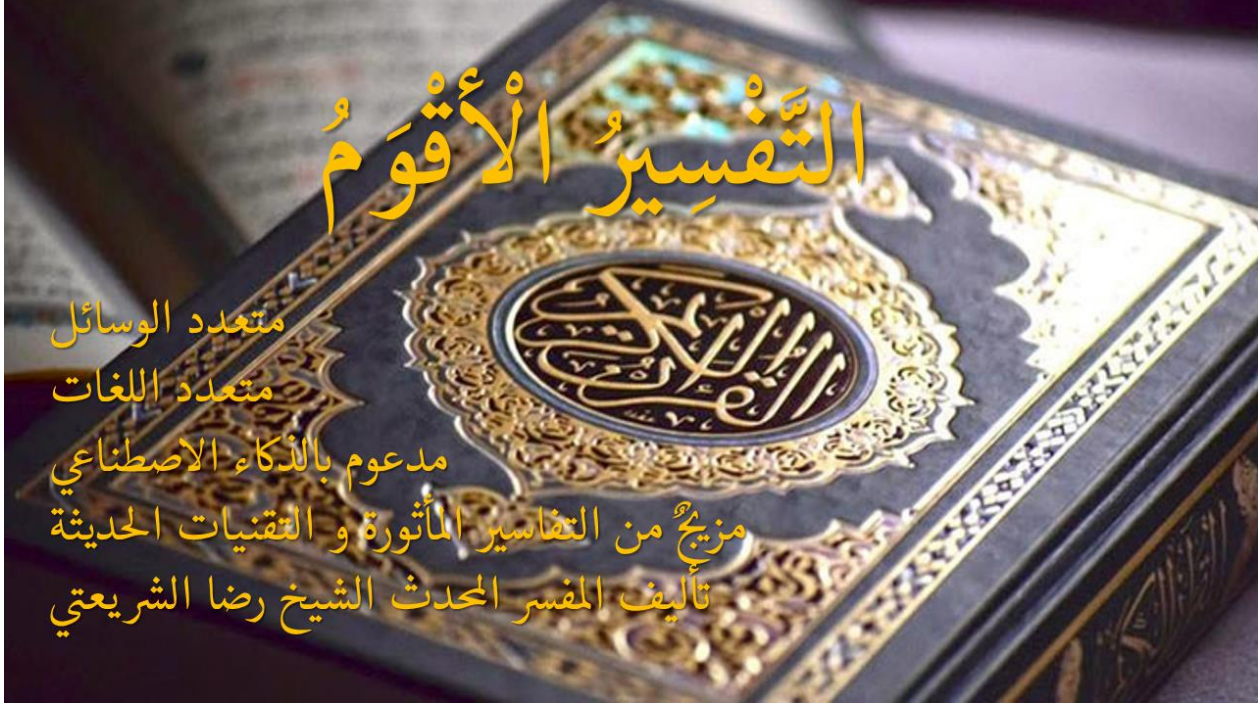 التَّفْسِيرُ الْأَقْوَمُ
القرآن الكريم
متعدد الوسائل
متعدد اللغات
مدعوم بالذكاء الاصطناعي
مزيجٌ من التفاسير المأثورة و التقنيات الحديثة
تأليف المفسر المحدث الشيخ رضا الشريعتي
القرآن الكريم